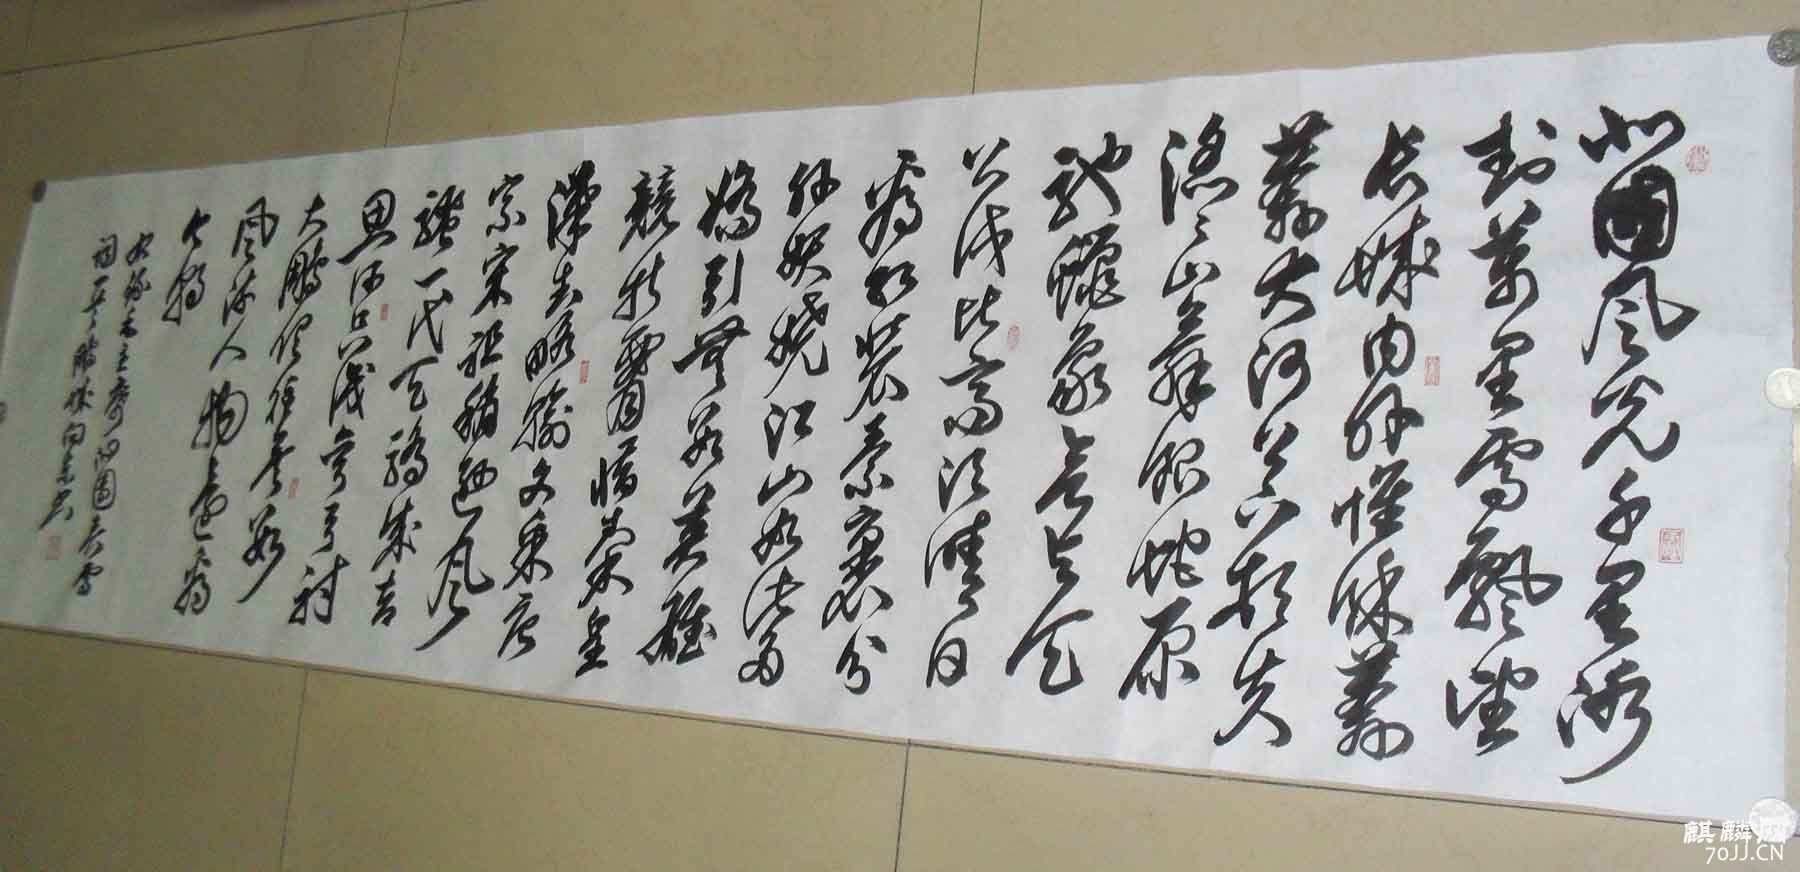 北國风光千里冰
封萬里雪飘望
长城内外惟餘莽
莽大河上下顿失
滔滔山舞银蛇原
驰蠟象欲与天
公试比高须晴日
看红装素裹分
外妖娆江山如此多
娇引無数英雄
競折腰惜秦皇
漢武略输文采唐
宗宋祖稍逊风
骚一代天骄成吉
思汗只识弯弓射
大鵰俱往矣数
风流人物還看
今朝
錄毛主席沁園春雪
词一首
麒麟网
70JJ.CN